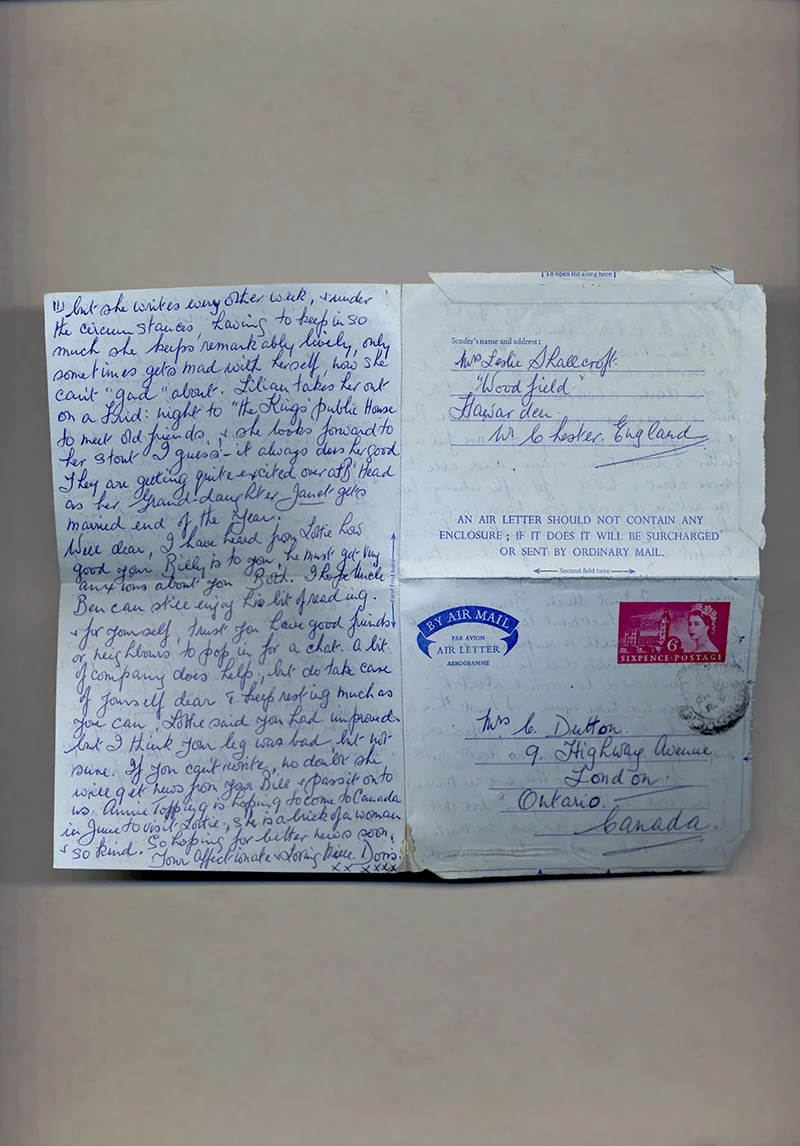 but she writes every other week, & under
the circumstances, having to keep in so
much she keeps remarkably lively, only
sometimes gets mad with herself, now she
can't "gad" about. Lilian takes her out
on a night to "the Kings" public House
to meet old friends, & she looks forward to
her stout I guess - it always does her good
They are getting quite excited over at Head
as her Grand-daughter Janet gets
married end of the Year.
Well dear, I have heard from Lottie how
good your Billy is to you, he must get very
anxious about you Both. I hope Uncle
Ben can still enjoy his bit of reading.
& for yourself, trust you have good friends
or neighbours to pop in for a chat. A bit
of company does help, but do take care
of yourself dear & keep resting much as
you can, Lottie said you had improved
but I think your leg was bad, but not
sure. If you can't write, no doubt she
will get news from your Bill & pass it on to
us. Annie Topping is hoping to come to Canada
in June to visit Lottie, she is a brick of a woman
& so kind. So hoping for better news soon.
Your Affectionate & Loving Niece. Doris.
xx xxxx
First fold here
[To open slit along here]
Sender's name and address:
Mrs Leslie Shallcroft.
"Woodfield"
Hawarden.
Nr Chester. England
AN AIR LETTER SHOULD NOT CONTAIN ANY
ENCLOSURE; IF IT DOES IT WILL BE SURCHARGED
OR SENT BY ORDINARY MAIL.
Second fold here
BY AIR MAIL
PAR AVION
AIR LETTER
AEROGRAMME
6D
SIXPENCE·POSTAGE
Mrs C. Dutton.
9. Highway Avenue
London.
Ontario.
Canada.